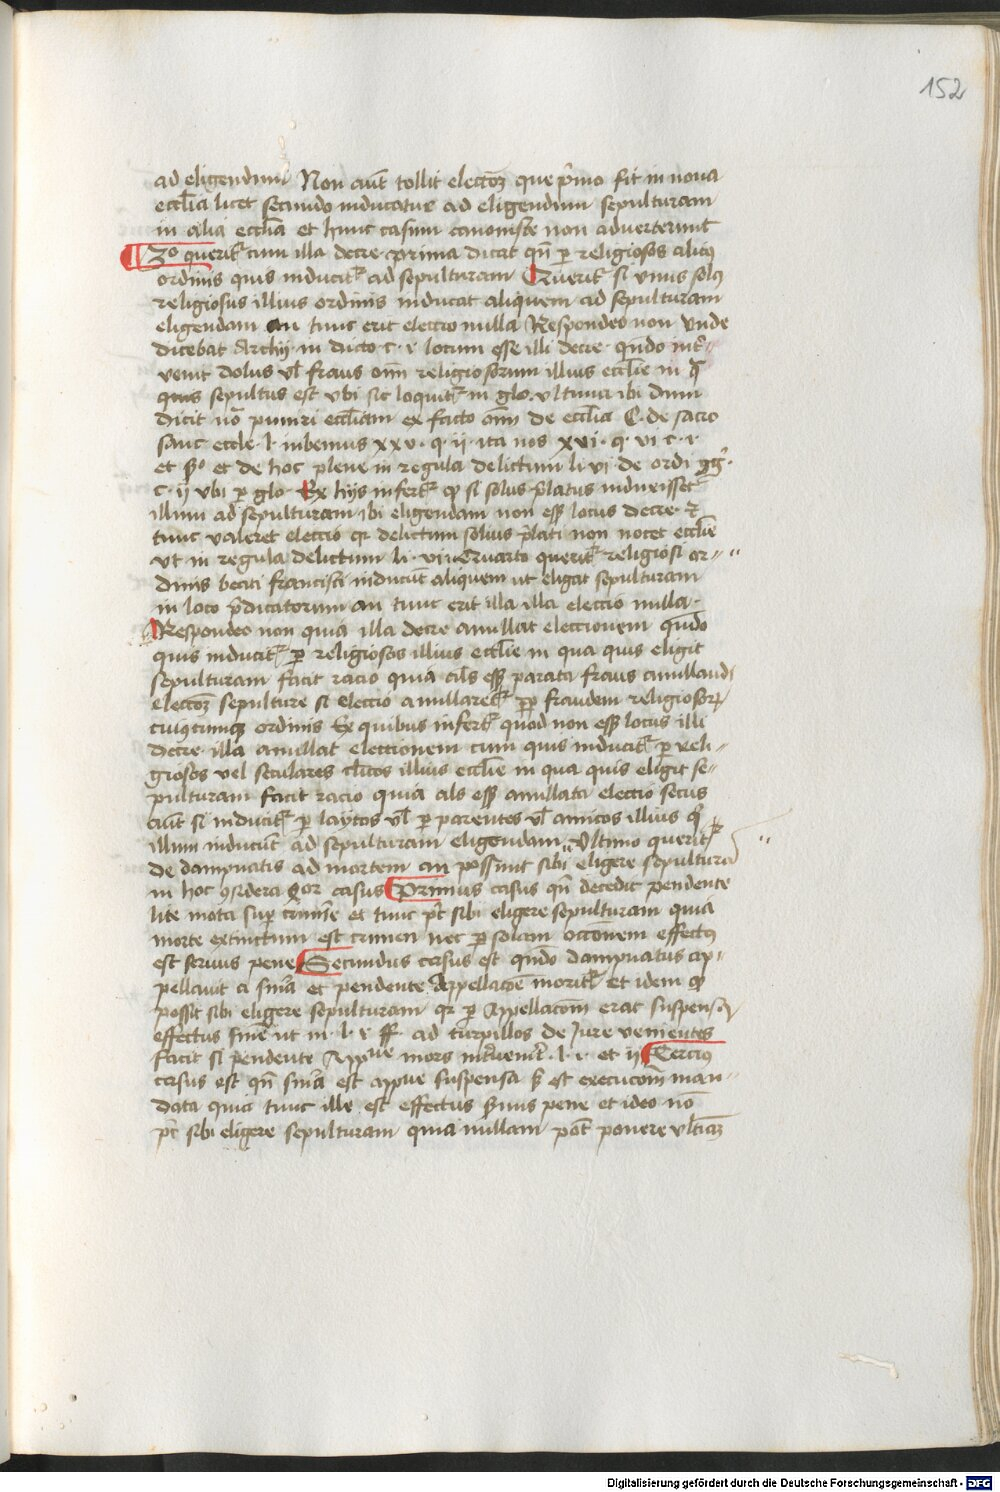 152
ad eligendum Non aūt tollit electōȝ que p̄mo fit in noua
eccl̄ia licet secundo inducatur ad eligendum sepulturam
in alia eccl̄ia et hunc casum canoniste non aduerterunt
3º querit᷑ cum illa decre prima dicat qn̄ p religiosos alicꝰ
ordinis quis inducit᷑ ad sepulturam Querit᷑ si vnus solꝰ
religiosus illius ordinis inducat aliquem ad sepulturam
eligendam an tunc erit electio nulla Respondeo non Unde
dicebat Archy in dicto c. i. locum esse illi decre. qn̄do int᷑
uenit dolus vl̄ fraus om̄ religiosorum illius eccl̄ie in q̄
quis sepultus est vbi sic loquit᷑ in glo. vltima ibi dum
dicit puniri eccl̄iam ex facto om̄ de eccl̄ia C. de sacro
sanc eccle. l. iubemus xxv. q. ij. ita nos xxvi. q. vi c. i.
et de hoc plene in regula delictum li vi de ordi
c. ij vbi p glo. Ex hijs infert᷑ ꝙ si solus p̄latus induxisset
illum ad sepulturam ibi eligendam non ess̄ locus decre. et
tunc valeret electio qr delictum solius p̄lati non nocet eccl̄ie
vt in regula delictum li. vi. Quarto querit᷑ religiosi or-
dinis beati francisci inducūt aliquem ut eligat sepulturam
in loco p̄dicatorum an tunc erit illa illa electio nulla.
Respondeo non quia illa decre anullat electionem qn̄do
quis inducit᷑ p religiosos illius eccl̄ie in qua quis eligit
sepulturam facit racio quia al̄s ess̄ parata fraus anullandi
electōȝ sepulture si electio anullaret᷑ pp̄ fraudem religiosoꝝ
cuiuscumqȝ ordinis Ex quibus infert᷑ quod non ess̄ locus illi
decre. illa anullat electionem cum quis inducit᷑ p reli-
giosos vel seculares cl̄icos illius eccl̄ie in qua quis eligit se-
pulturam facit racio quia al̄s ess̄ anullata electio secus
aūt si inducit᷑ p laycos vl̄ p parentes vl̄ amicos illius qui
illum inducūt ad sepulturam eligendam Vltimo querit᷑
de dampnatis ad mortem an possunt sibi eligere sepulturā
in hoc ꝯsidera qr casus Primus casus qn̄ decedit pendente
lite mota sup crimīe et tunc pt̄ sibi eligere sepulturam quia
morte extinctum est crimen nec p solam occōnem effectꝰ
est seruus pene Secundus casus est qn̄do dampnatus ap-
pellauit a sn̄ia et pendente Appellacōe morit᷑ et idem ꝙ
possit sibi eligere sepulturam qr p Appellacōm erat suspensꝰ
effectus sn̄ie ut in. l. i. ff. ad turpillos de Jure venientes
facit si pendente App̄ne mors int᷑uenit᷑. l. i. et ij Tercius
casus est qn̄ sn̄ia est app̄ne suspensa s̄ est execucōm man-
data quia tunc ille est effectus s̄uus pene et ideo nō
pt̄ sibi eligere sepulturam quia nullam pot̄ ponere vltimāȝ
Digitalisierung gefördert durch die Deutsche Forschungsgemeinschaft - DFG